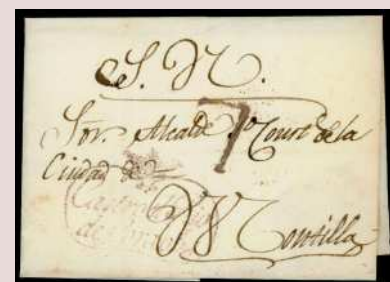 S. N.
Sor. Alcalde Const de la
7
Ciudad de
Montilla